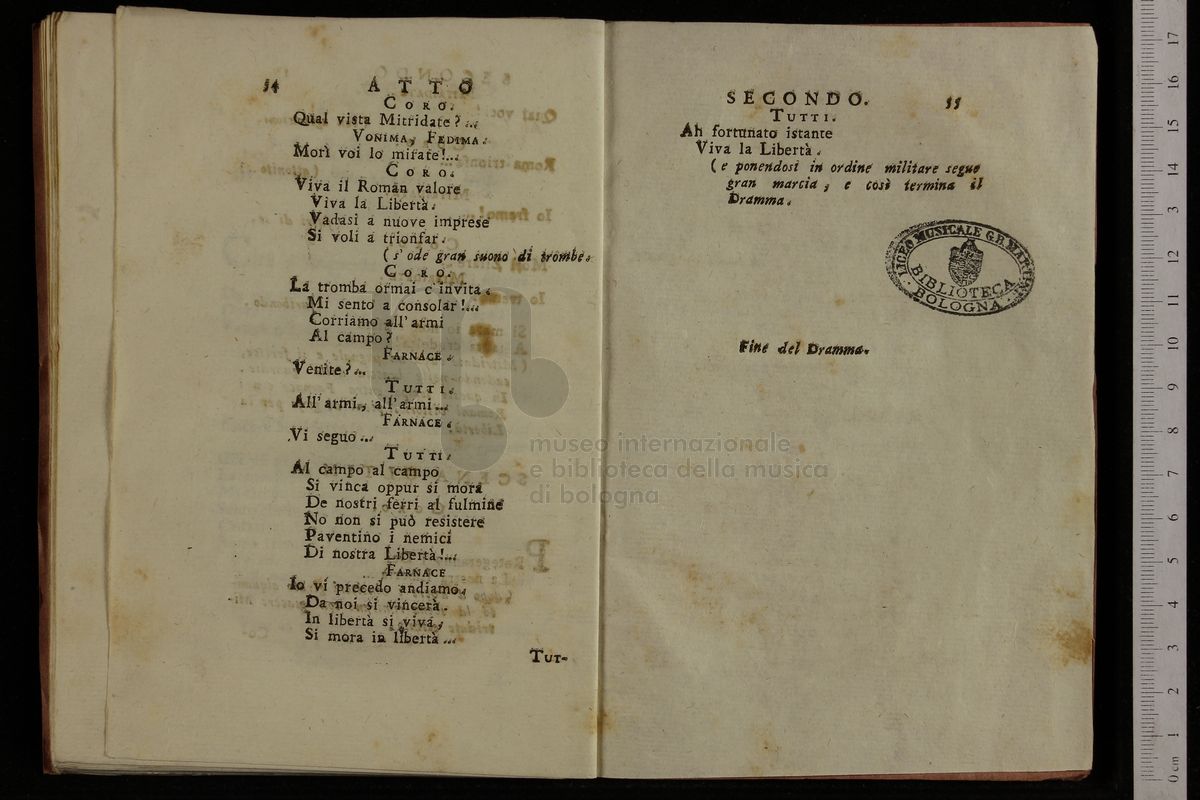 54 ATTO
CORO.
Qual vista Mitridate?...
VONIMA, FEDIMA.
Morì voi lo mirate!...
CORO.
Viva il Roman valore
Viva la Libertà.
Vadasi a nuove imprese
Si voli a trionfar.
(s'ode gran suono di trombe.
CORO.
La tromba ormai c'invita.
Mi sento a consolar!...
Corriamo all'armi
Al campo?
FARNACE.
Venite?...
TUTTI.
All'armi, all'armi...
FARNACE.
Vi seguo...
TUTTI.
Al campo al campo
Si vinca oppur si mora
De nostri ferri al fulmine
No non si può resistere
Paventino i nemici
Di nostra Libertà!...
FARNACE
Io vi precedo andiamo.
Da noi si vincerà.
In libertà si viva,
Si mora in libertà...
TUT-
SECONDO. 55
TUTTI.
Ah fortunato istante
Viva la Libertà.
(e ponendosi in ordine militare segue
gran marcia, e così termina il
Dramma.
LICEO MUSICALE G.B. MARTINI
BIBLIOTECA
BOLOGNA
Fine del Dramma.
museo internazionale
e biblioteca della musica
di bologna
0 cm 1 2 3 4 5 6 7 8 9 10 11 12 13 14 15 16 17